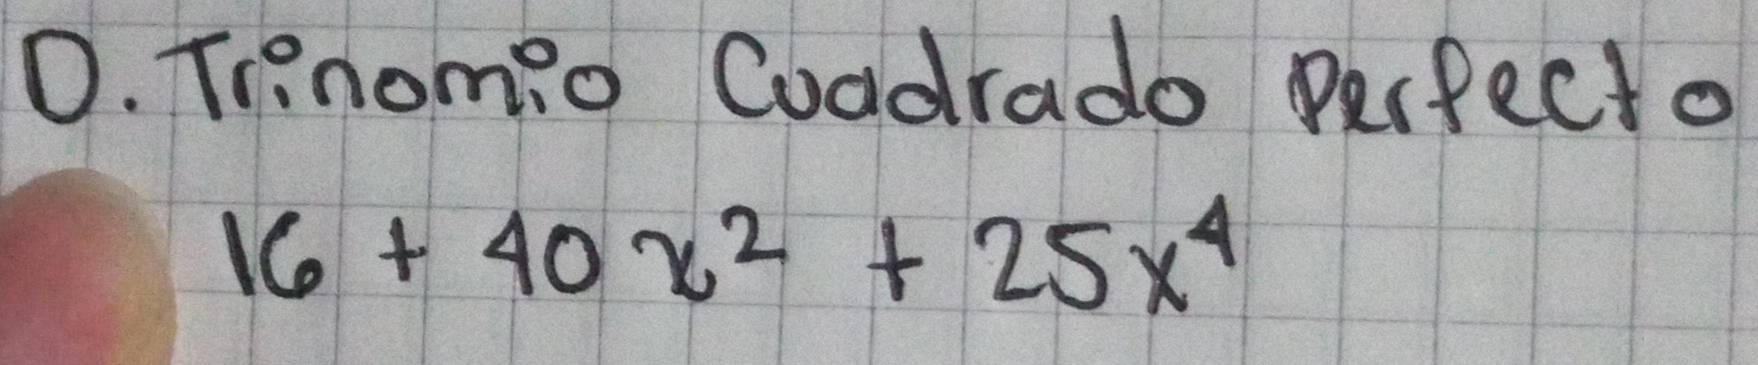 D. Trinomio Cuadrado Perfecto
16 + 40x² + 25x⁴